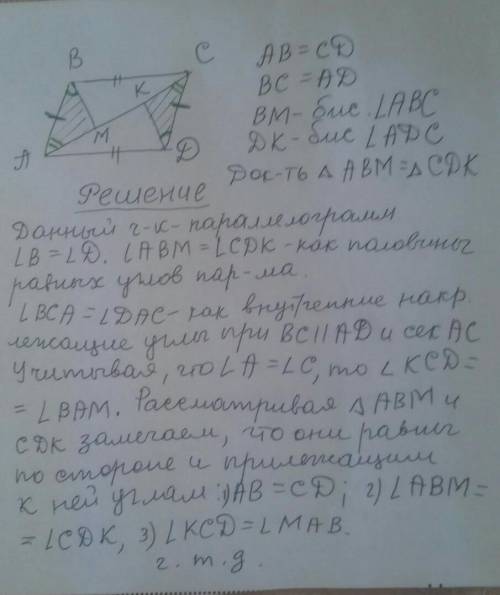 B
C
K
M
A
D
AB = CD
BC = AD
BM - бис. ∠ABC
DK - бис ∠ADC
Док-ть △ ABM = △ CDK
Решение
Данный ч-к - параллелограмм
∠B = ∠D. ∠ABM = ∠CDK - как половины
равных углов пар-ма.
∠BCA = ∠DAC - как внутренние накр.
лежащие углы при BC || AD и сек AC
Учитывая, что ∠A = ∠C, то ∠KCD =
= ∠BAM. Рассматривая △ ABM и
CDK замечаем, что они равны
по стороне и прилежащим
к ней углам: 1) AB = CD; 2) ∠ABM =
= ∠CDK, 3) ∠KCD = ∠MAB.
ч.т.д.